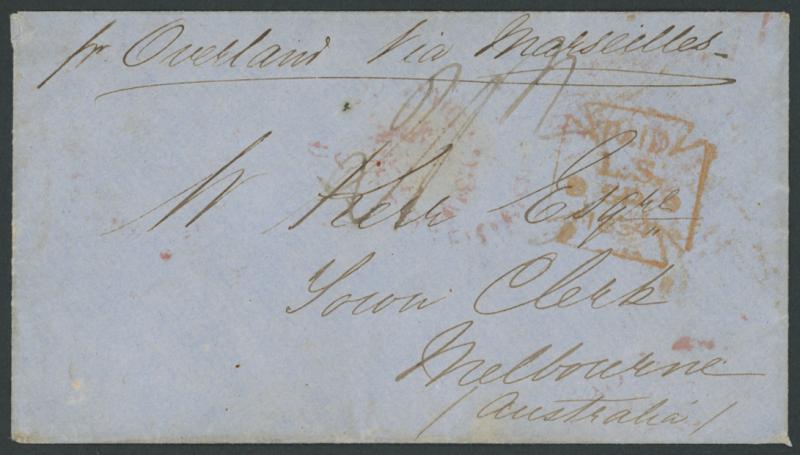 pr Overland Via Marseilles
PAID
L.S.
W Kerr Esqre
Town Clerk
Melbourne
/Australia/